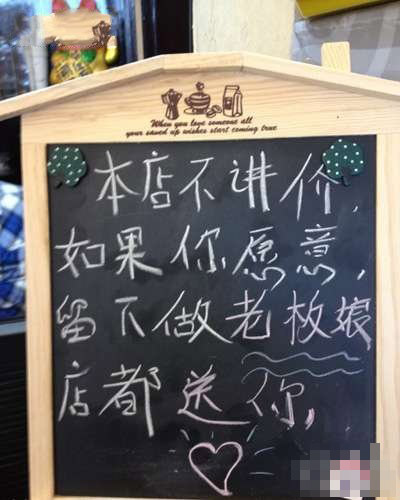 When you love someone all
your saved up wishes start coming true
本店不讲价,
如果你愿意,
留下做老板娘
店都送你,